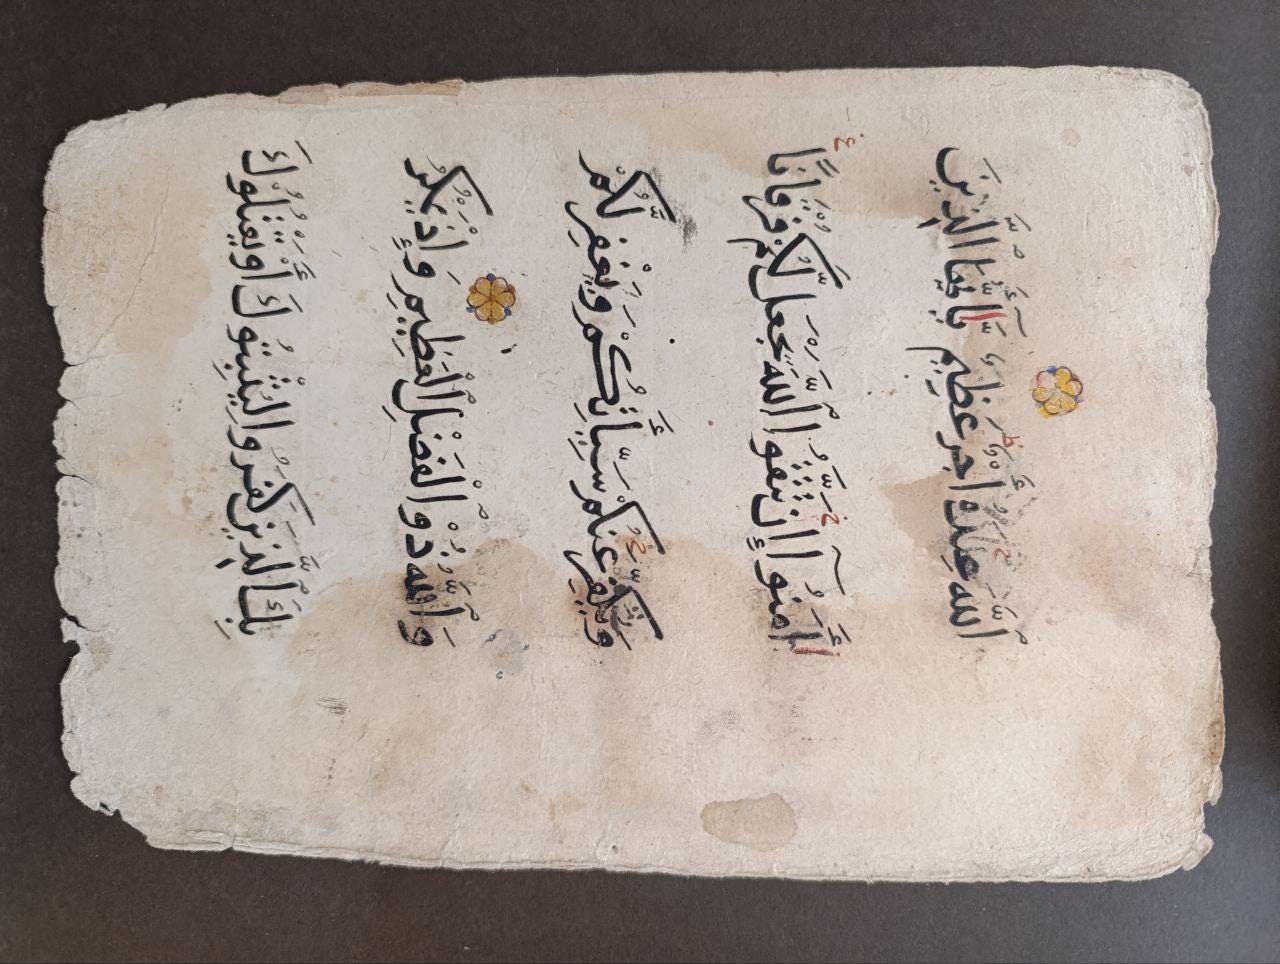 ٱللَّهَ عِندَهُۥٓ أَجْرٌ عَظِيمٌ يَٰٓأَيُّهَا ٱلَّذِينَ
ءَامَنُوٓا۟ إِن تَتَّقُوا۟ ٱللَّهَ يَجْعَل لَّكُمْ فُرْقَانًا
وَيُكَفِّرْ عَنكُمْ سَيِّـَٔاتِكُمْ وَيَغْفِرْ لَكُمْ
وَٱللَّهُ ذُو ٱلْفَضْلِ ٱلْعَظِيمِ وَإِذْ يَمْكُرُ
بِكَ ٱلَّذِينَ كَفَرُوا۟ لِيُثْبِتُوكَ أَوْ يَقْتُلُوكَ